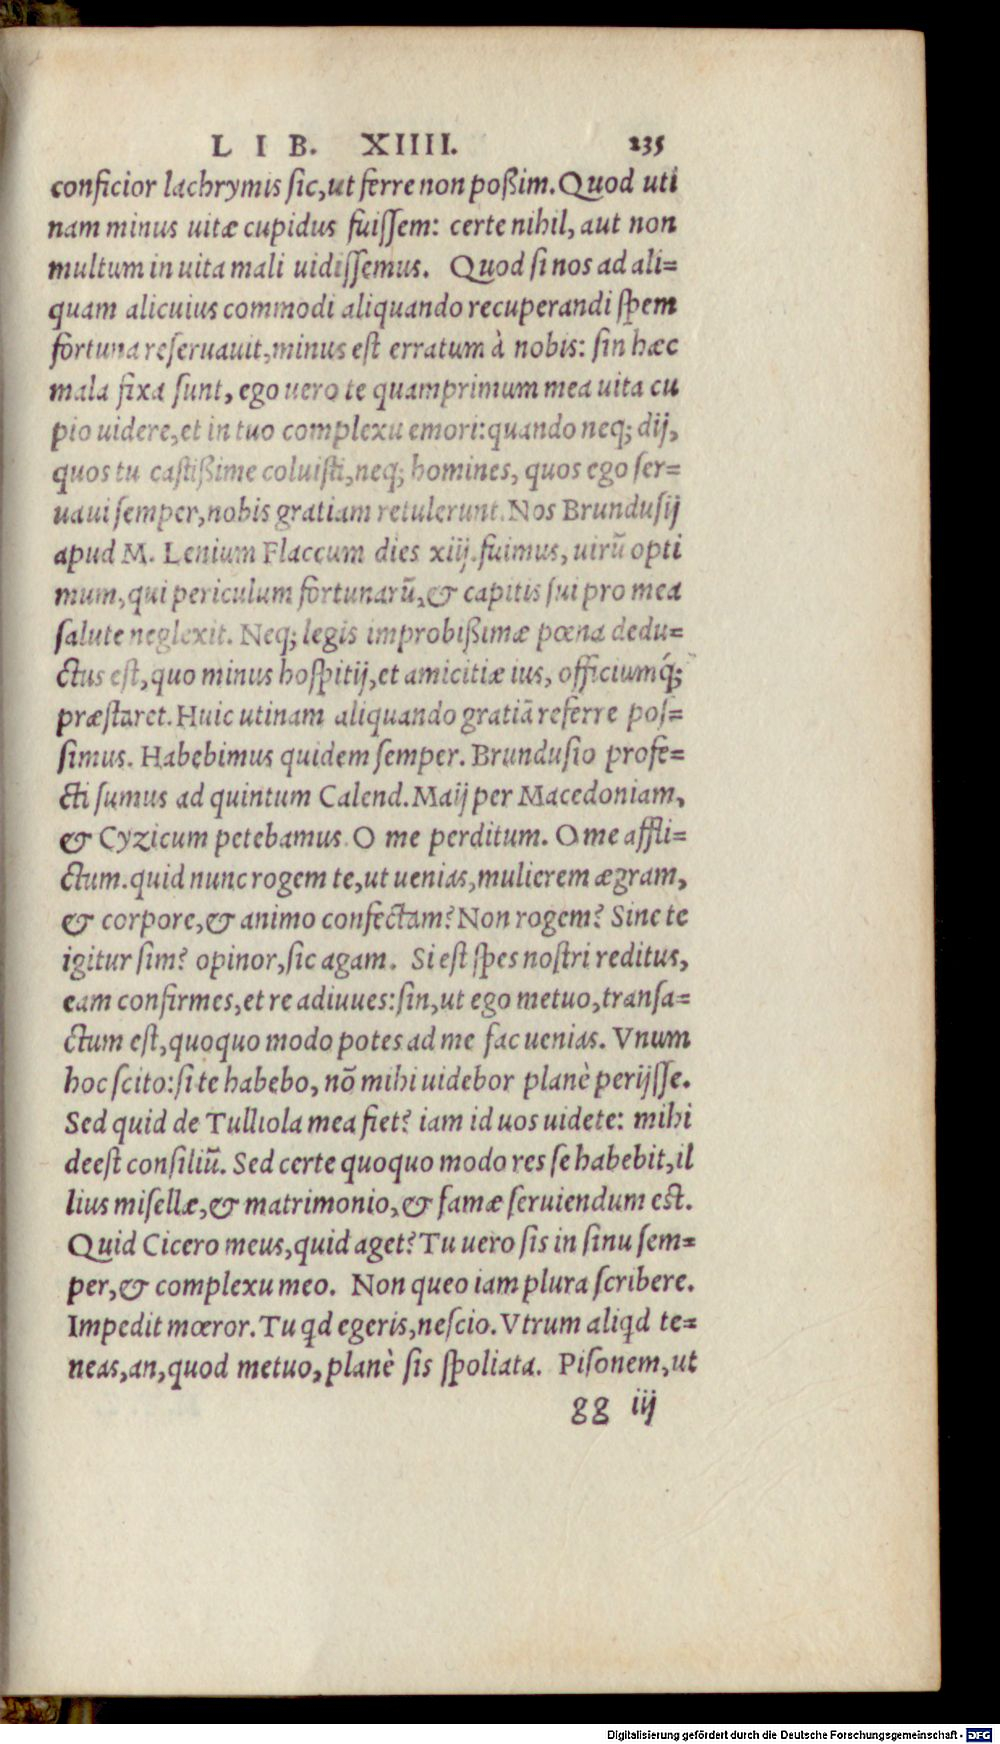 L I B. XIIII. 235
conficior lachrymis sic, ut ferre non poßim. Quod uti
nam minus uitæ cupidus fuissem: certe nihil, aut non
multum in uita mali uidissemus. Quod si nos ad ali=
quam alicuius commodi aliquando recuperandi spem
fortuna reseruauit, minus est erratum à nobis: sin hæc
mala fixa sunt, ego uero te quamprimum mea uita cu
pio uidere, et in tuo complexu emori: quando neq; dij,
quos tu castißime coluisti, neq; homines, quos ego ser=
uaui semper, nobis gratiam retulerunt. Nos Brundusij
apud M. Lenium Flaccum dies xiij. fuimus, uirū opti
mum, qui periculum fortunarū, & capitis sui pro mea
salute neglexit. Neq; legis improbißimæ pœna dedu=
ctus est, quo minus hospitij, et amicitiæ ius, officiumq́;
præstaret. Huic utinam aliquando gratiā referre pos=
simus. Habebimus quidem semper. Brundusio profe=
cti sumus ad quintum Calend. Maij per Macedoniam,
& Cyzicum petebamus. O me perditum. O me affli=
ctum. quid nunc rogem te, ut uenias, mulierem ægram,
& corpore, & animo confectam? Non rogem? Sine te
igitur sim? opinor, sic agam. Si est spes nostri reditus,
eam confirmes, et re adiuues: sin, ut ego metuo, transa=
ctum est, quoquo modo potes ad me fac uenias. Vnum
hoc scito: si te habebo, nō mihi uidebor planè perijsse.
Sed quid de Tulliola mea fiet? iam id uos uidete: mihi
deest consiliū. Sed certe quoquo modo res se habebit, il
lius misellæ, & matrimonio, & famæ seruiendum est.
Quid Cicero meus, quid aget? Tu uero sis in sinu sem=
per, & complexu meo. Non queo iam plura scribere.
Impedit mœror. Tu qd egeris, nescio. Vtrum aliqd te=
neas, an, quod metuo, planè sis spoliata. Pisonem, ut
gg iij
Digitalisierung gefördert durch die Deutsche Forschungsgemeinschaft - DFG